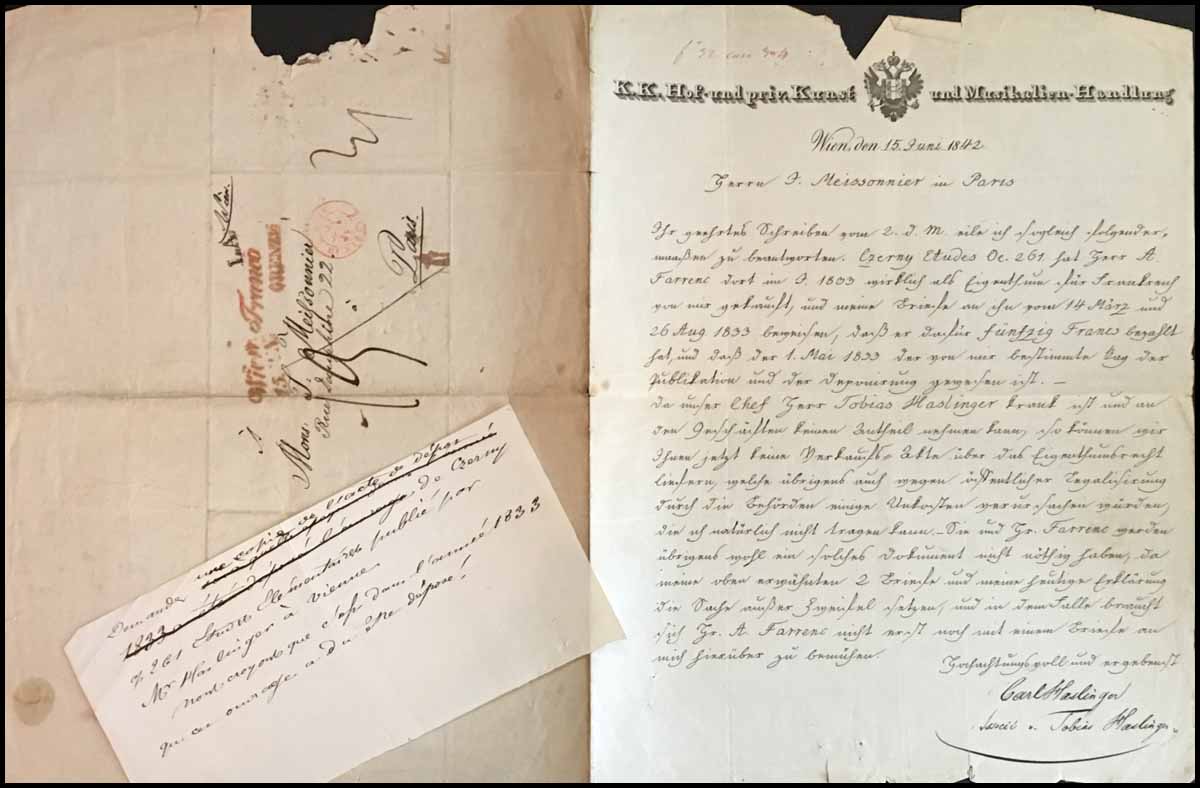 à
Mons. J. Meissonnier
Rue Dauphine 22
à
Paris.
Wien
Franco
Demander une copie de l'acte de dépôt
1833
Op 261 Etudes Elémentaires publié par
de Czerny
Mr Haslinger à Vienne
nous croyons que c'est dans l'année 1833
que cet ouvrage a du être déposé!
K.K. Hof- und priv. Kunst und Musikalien-Handlung
Wien, den 15. Juni 1842
Herrn J. Meissonnier in Paris
Ihr geehrtes Schreiben vom 2. d. M. eile ich sogleich folgender,
maaßen zu beantworten. Czerny Etudes Oe. 261 hat Herr A.
Farrenc dort im J. 1833 wirklich als Eigenthum für Frankreich
von mir gekauft, und meine Briefe an ihn vom 14 März und
26 Aug 1833 beweisen, daß er dafür fünfzig Francs bezahlt
hat, und daß der 1. Mai 1833 der von mir bestimmte Tag der
Publikation und der Deponirung gewesen ist. —
Da unser Chef Herr Tobias Haslinger krank ist und an
den Geschäften keinen Antheil nehmen kann, so können wir
Ihnen jetzt keine Verkaufs-Akte über das Eigenthumsrecht
liefern, welche übrigens auch wegen öffentlicher Legalisirung
durch die Behörden einige Unkosten verursachen würden,
die ich natürlich nicht tragen kann. Sie und Hr. Farrenc werden
übrigens wohl ein solches Dokument nicht nöthig haben, da
meine oben erwähnten 2 Briefe und meine heutige Erklärung
die Sache außer Zweifel setzen, und in dem Falle braucht
sich Hr. A. Farrenc nicht erst noch mit einem Briefe an
mich hierüber zu bemühen.
Hochachtungsvoll und ergebenst
Carl Haslinger
Associé v. Tobias Haslinger